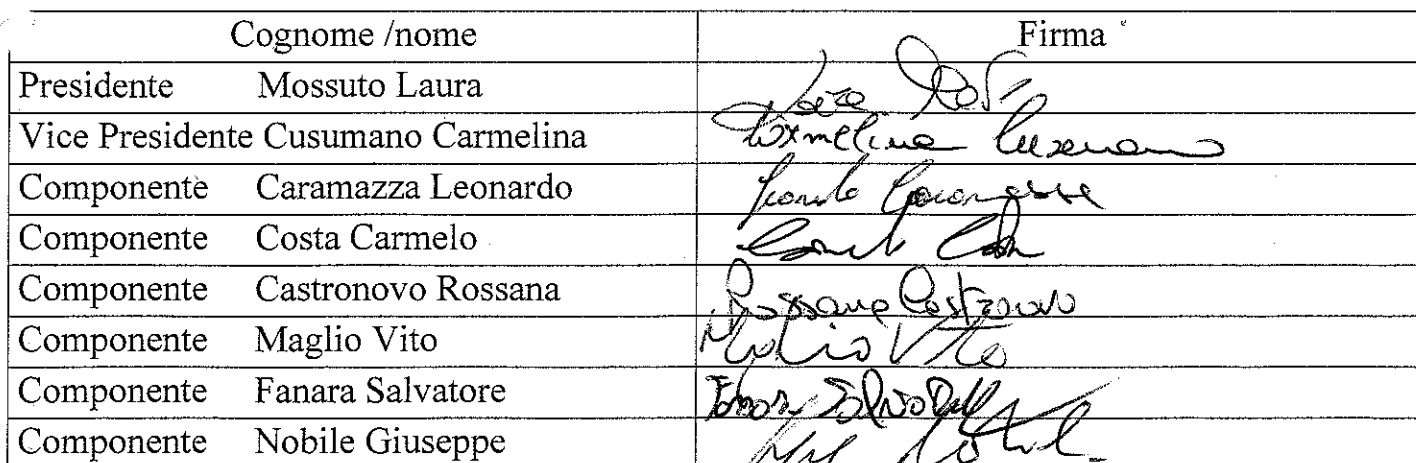 Cognome /nome Firma
Presidente Mossuto Laura
Vice Presidente Cusumano Carmelina Carmelina Cusumano
Componente Caramazza Leonardo
Componente Costa Carmelo
Componente Castronovo Rossana Rossana Castronovo
Componente Maglio Vito Maglio Vito
Componente Fanara Salvatore
Componente Nobile Giuseppe